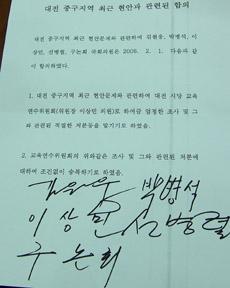 대전 중구지역 최근 현안과 관련된 합의
대전 중구지역 최근 현안문제와 관련하여 김원웅, 박병석, 이
상민, 선병렬, 구논회 국회의원은 2006. 2. 1. 다음과 같
이 합의하였다.
1. 대전 중구지역 최근 현안문제와 관련하여 대전 시당 교육
연수위원회(위원장 이상민 의원)로 하여금 엄정한 조사 및 그
와 관련된 적절한 처분등을 맡기기로 하였음.
2. 교육연수위원회의 위와같은 조사 및 그와 관련된 처분에
대하여 조건없이 승복하기로 하였음.
김원웅 박병석
이상민 선병렬
구논회